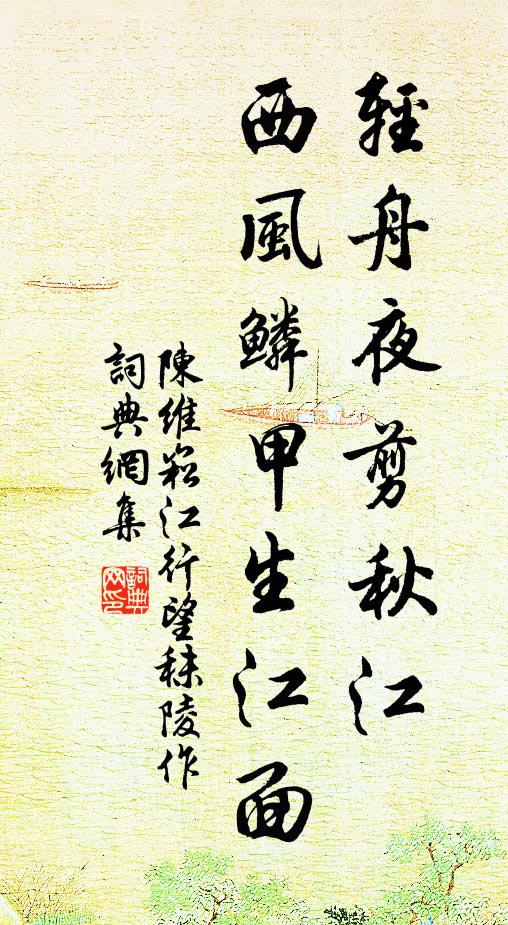 輕舟夜剪秋江
西風鱗甲生江面
陳維崧江行望秣陵作
詞典網集
詞典
网印